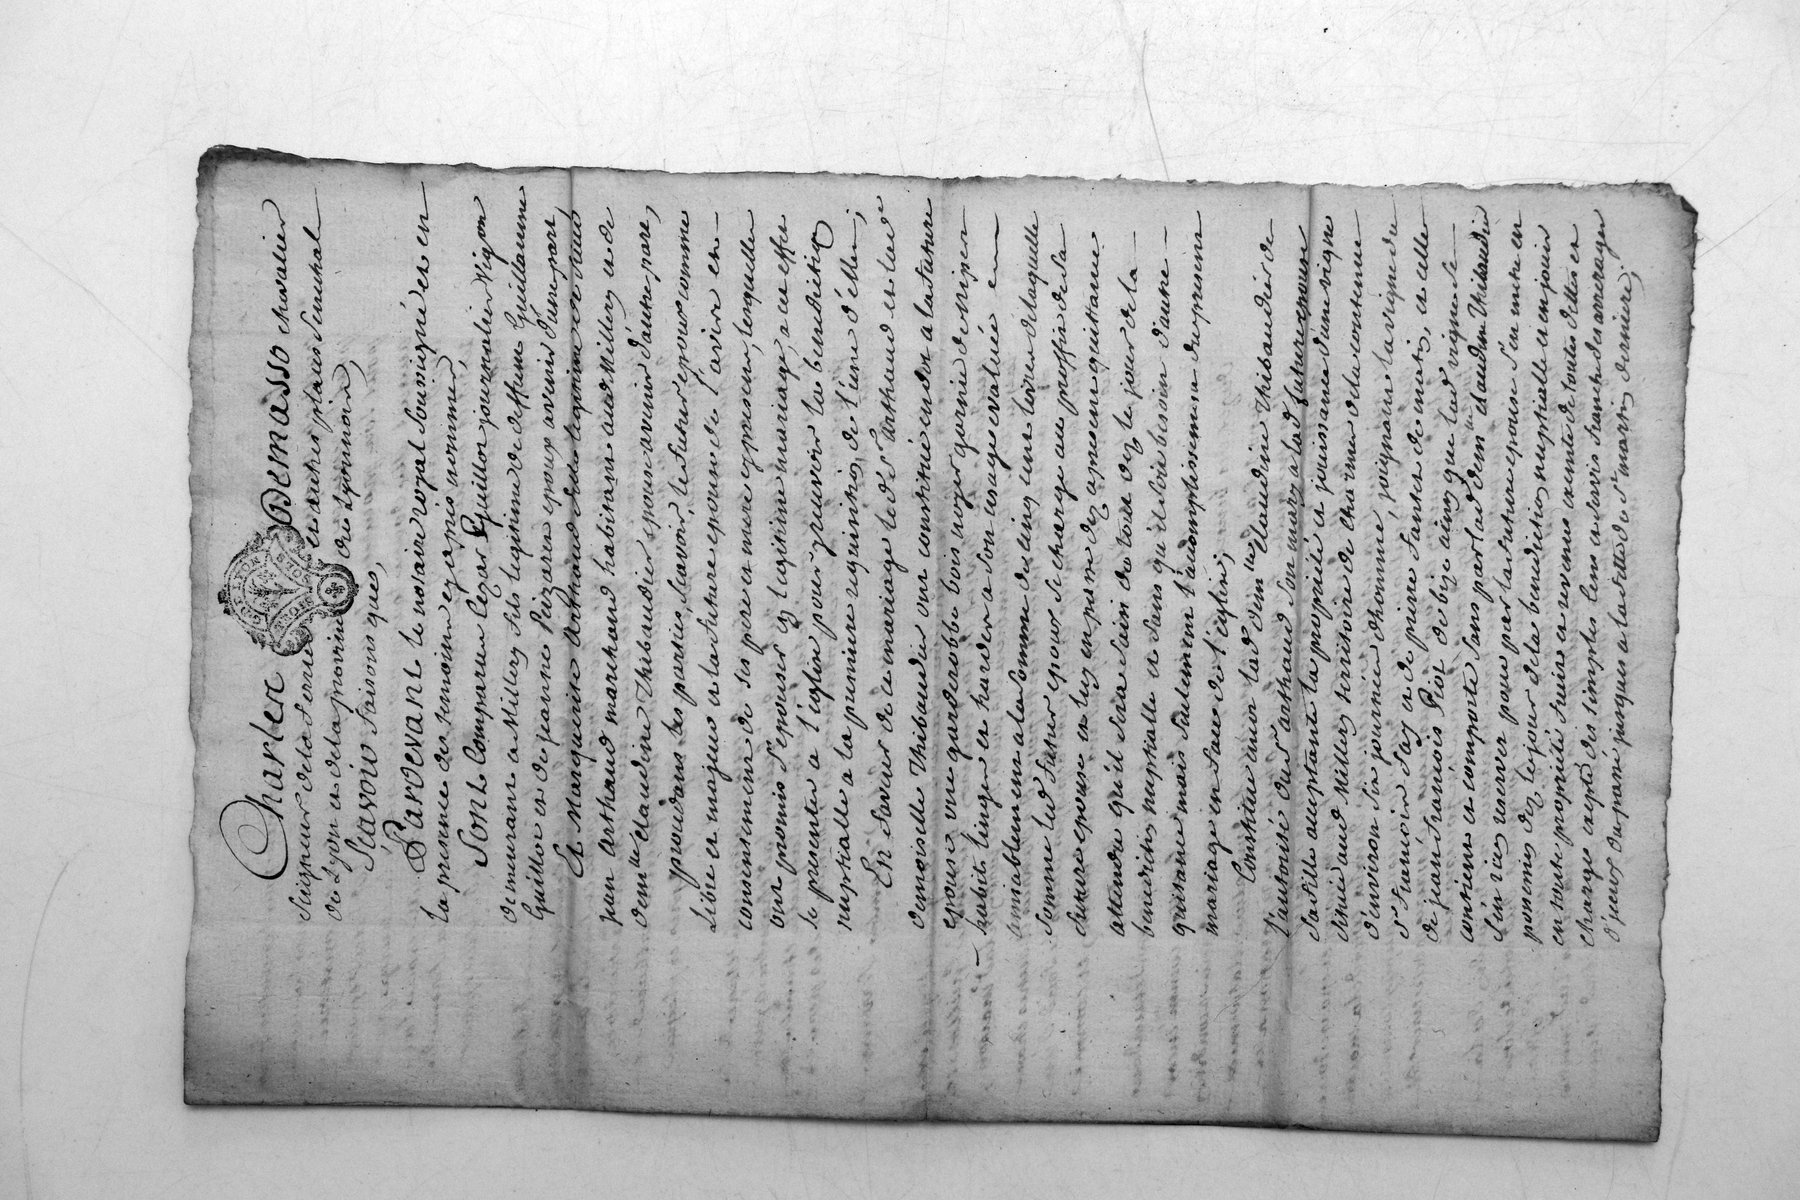 Charles Demasso chevalier
Seigneur de la Ferriere et autres places Senechal
de Lyon et de la province du Lyonnois,
Scavoir faisons que,
Pardevant le notaire royal soussigné et en
la presence des temoins cy apres nommés,
Sont Comparus Cesar Guillot journalier Vigon
demeurant a Millery fils legitime de deffunt Guillaume
Guillot et de jeanne Suzan epoux avenir d'une part,
Et Marguerite Arthaud fille legitime de sieur
jean Arthaud marchand habitant aud Millery et de
dem.lle claudine Thibaudier epouse avenir d'autre part,
procedans les parties, scavoir, le futur epoux comme
Libre et majeur et la future epouse de l'avis et
consentement de ses pere et mere cy presens, lesquelles
ont promis s'epouser en legitime mariage, a cet effet
se presenter a l'eglise pour y recevoir la benediction
nuptialle a la premiere requisition de l'une d'elles;
En faveur de ce mariage led. Sr Arthaud et lad.e
demoiselle Thibaudier ont constitué en dot a la future
epouse une garderobbe bois noyer garnie de ses
habits linges et hardes a son usage evaluée en
amiablement a la somme de cinq cent livres de laquelle
somme led futur epoux se charge au proffit de la
future epouse et luy en passe dez apresent quittance
attendu qu'il sera saisi du tout dez le jour de la
benediction nuptialle et sans qu'il soit besoin d'autre
quittance mais seulement l'accomplissement du present
mariage en face de l'eglise;
Constitue encor lad dem.lle claudine Thibaudier de
l'autorité dud.r arthaud son mary a lad future epouse
sa fille acceptante la propriété et jouissance d'une vigne
située aud Millery territoire de charmes de la contenue
d'environ six journées d'homme, joignant la vigne du
Sr francois Say et de pierre fantet de matin, et celle
de jean francois Piot de bize ainsy que lad vigne se
contient et comporte sans par lad dem.lle claudine Thibaudier
s'en rien reserver pour par la future epouse s'en mettre en
possession dez le jour de la benediction nuptialle et en jouir
en toute propriété fruits et revenus exempte de toutes dettes et
charges excepté des simples cens et servis francs des arrerages
d'iceux du passé jusques a la fête de St martin derniere;